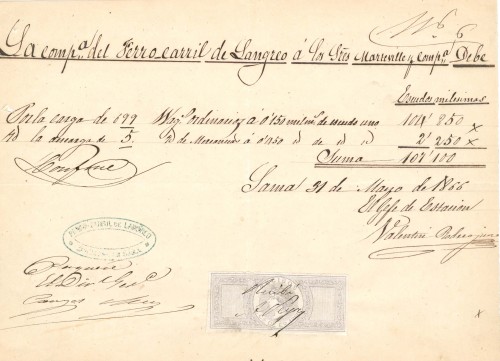 Nº 6
La compª del Ferro carril de Langreo á los Sres Marteville y compª Debe
Escudos milesimas
Por la carga de 699 Wag.s ordinarios á 0'150 milms de escudo uno 104' 850
Id la de 5. id de á 0'450 id de id id 2' 250
Suma 107' 100
Conforme
Sama 31 de Mayo de 1866
El Gefe de Estacion
Valentin
FERRO-CARRIL DE LANGREO
Páguese
El Dirr Gerte
Recibí